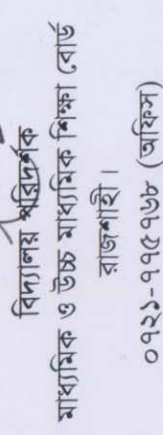 বিদ্যালয় পরিদর্শক
মাধ্যমিক ও উচ্চ মাধ্যমিক শিক্ষা বোর্ড
রাজশাহী।
০৭২১-৭৭৫৭৬৮ (অফিস)